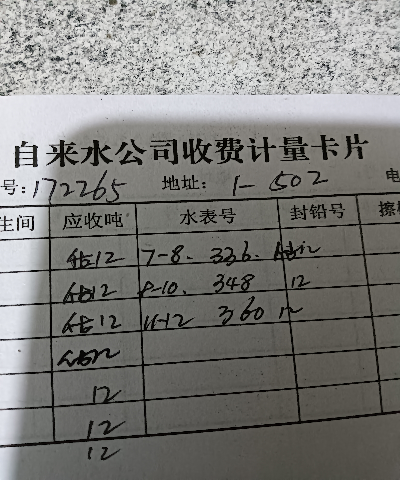 自来水公司收费计量卡片
号:172265 地址: 1-502 电
生间 应收吨 水表号 封铅号 擦
估12 7-8. 336. 估12
估12 8-10. 348 12
估12 11-12 360 12
估12
12
12
12